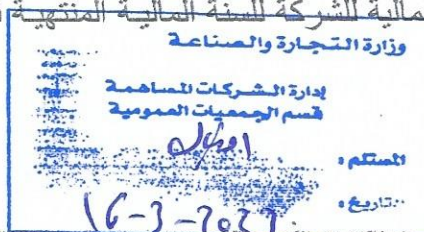 مالية للشركة للسنة المالية المنتهية
وزارة التجارة والصناعة
إدارة الشركات المساهمة
قسم الجمعيات العمومية
المستلم :
التاريخ : 16-3-2023